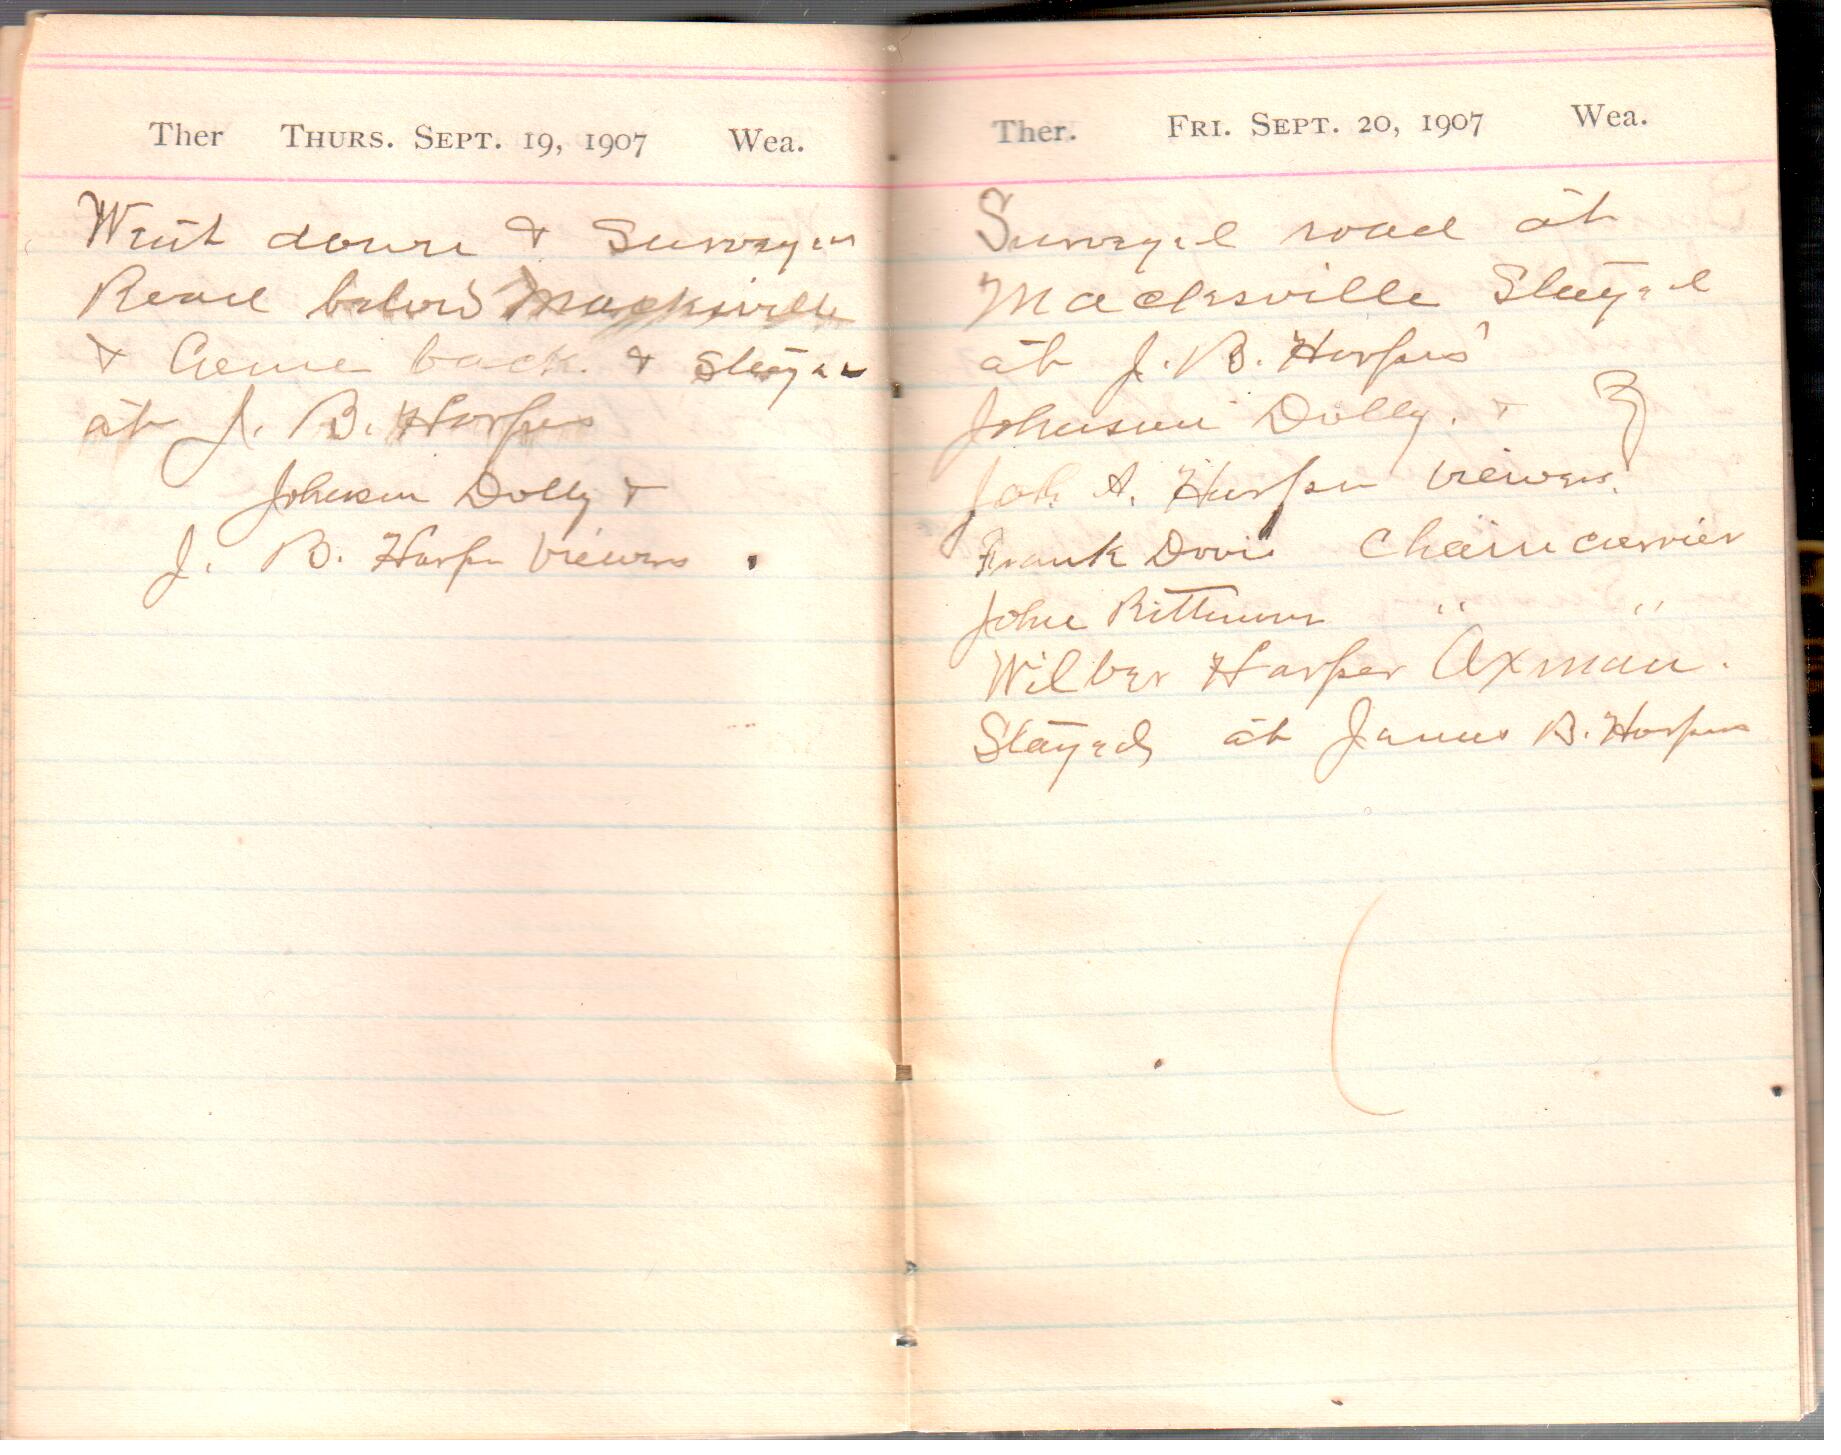 Ther THURS. SEPT. 19, 1907 Wea.
Went down & Surveyed
Road below Macksville
& Came back & Stayed
at J. B. Harpers
Johnson Dolly &
J. B. Harper viewers.
Ther. FRI. SEPT. 20, 1907 Wea.
Surveyed road at
Macksville Stayed
at J. B. Harpers'
Johnson Dolly. &
A. Harper viewers.
Frank Davis Chain carrier
John " "
Wilber Harper Axman.
Stayed at James B. Harpers